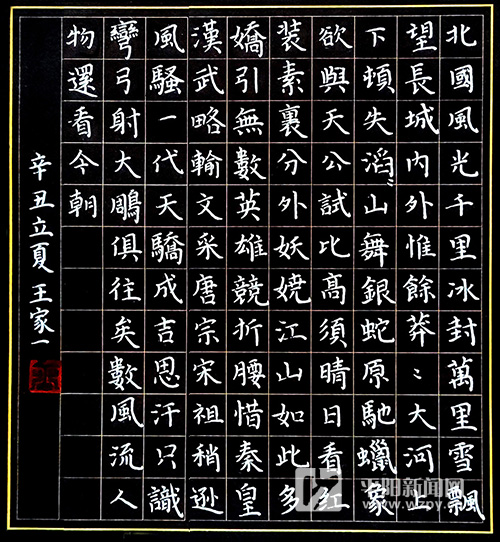 北國風光千里冰封萬里雪飄
望長城内外惟餘莽〻大河上
下頓失滔〻山舞銀蛇原馳蠟象
欲與天公試比高須晴日看紅
装素裏分外妖嬈江山如此多
嬌引無數英雄競折腰惜秦皇
漢武略輸文采唐宗宋祖稍遜
風騷一代天驕成吉思汗只識
彎弓射大鵰俱往矣數風流人
物還看今朝
辛丑立夏王家一
平阳新闻网